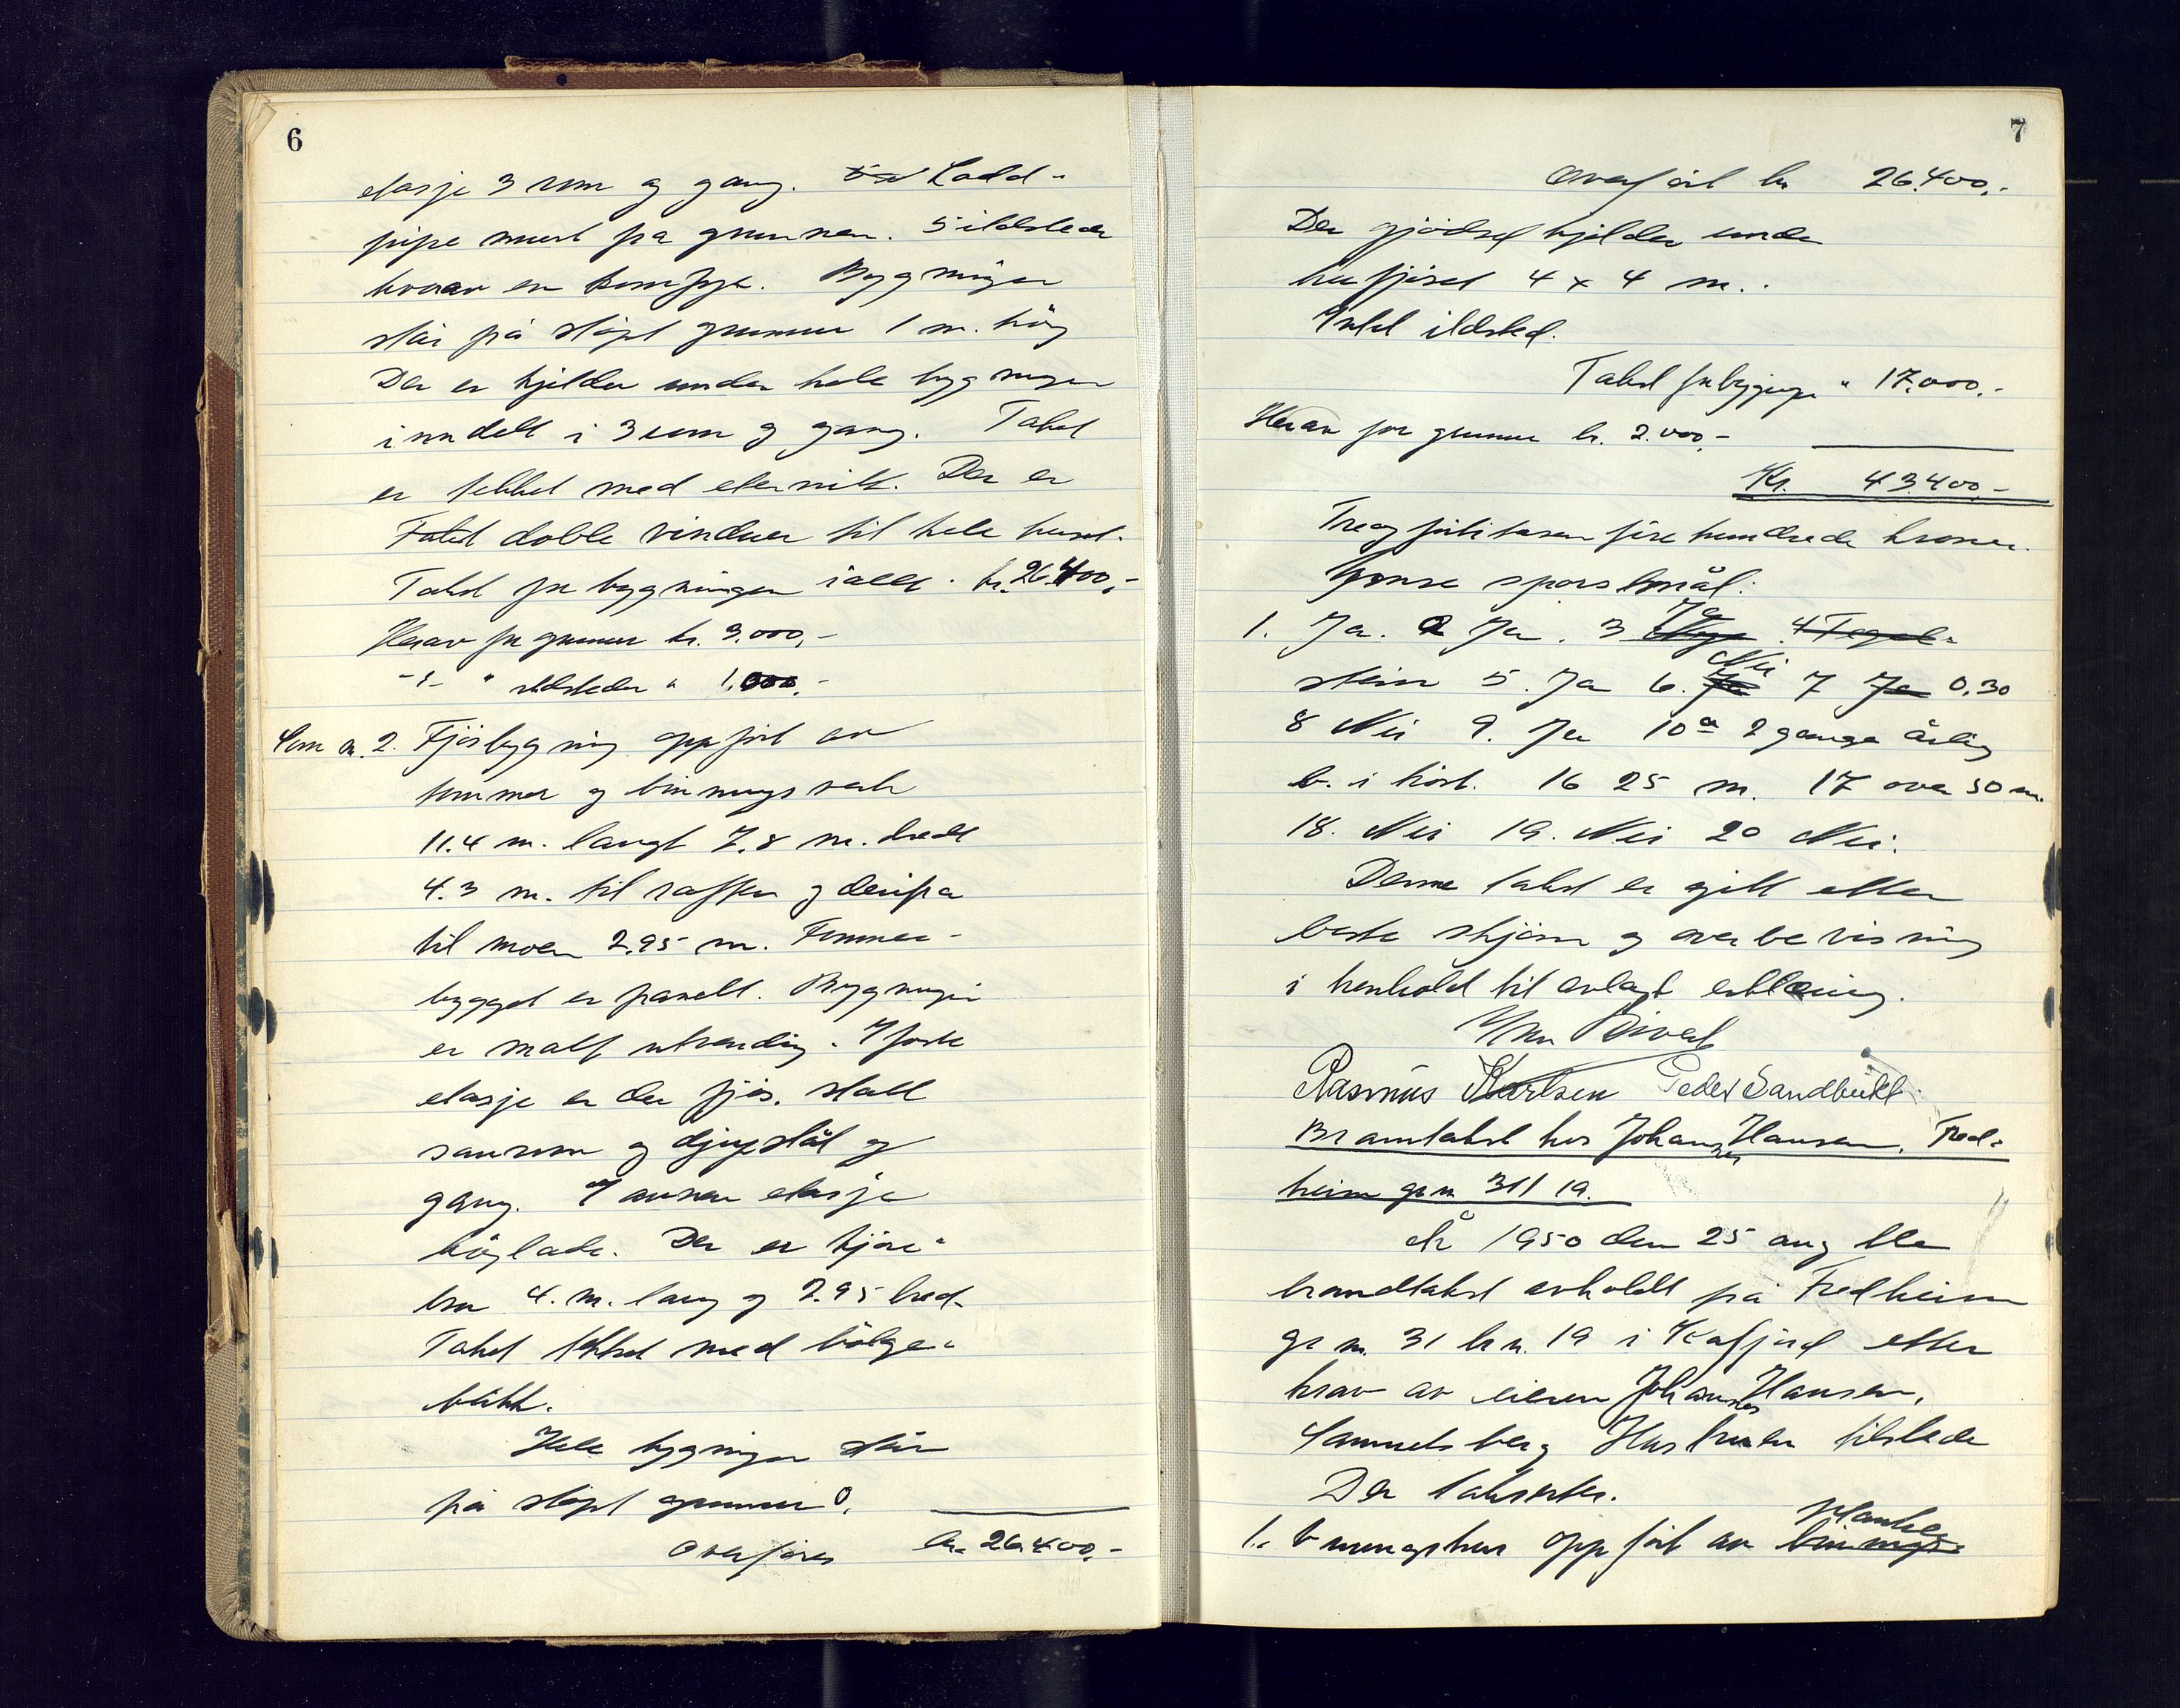 6
etasje 3 rom og gang. Lodd-
pipe murt fra grunnen. 5 ildsteder
hvorav en komfyr. Bygningen
står på støpt grunnmur 1 m. høy
Der er kjelder under hele bygningen
inndelt i 3 rom og gang. Taket
er tekket med eternitt. Der er
doble vinduer til hele huset.
Takst for bygningen i alt. kr. 26.400,-
Herav for grunnmur kr. 3.000,-
-"- " ildsteder " 1.000,-
Som nr. 2. Fjøsbygning oppført av
tømmer og binningsverk
11.4 m. langt 7.8 m. bredt
4.3 m. til raften og derifra
til møen 2.95 m. Tømmer-
bygget er panelt. Bygningen
er malt utvendig. I første
etasje er der fjøs, stall
saurom og djupstål og
gang. I annen etasje
høylade. Der er kjøre-
bru 4. m. lang og 2.95 bred.
Taket tekket med bølge-
blikk.
Hele bygningen står
på støpt grunnmur.
Overføres kr. 26.400,-
7
Overført kr 26.400,-
Der gjødselkjelder under
fjøset 4 x 4 m.
Intet ildsted.
Takst for bygningen " 17.000,-
Herav for grunnmur kr. 2.000,-
Kr. 43.400,-
Treogførtitusen fire hundrede kroner.
spørsmål:
1. Ja. 2 Ja. 3 Ja 4 Tegel-
stein 5. Ja 6. Nei 7 Ja 0.30
8 Nei 9. Ja 10 a 2 ganger årlig
b. i høst. 16 25 m. 17 over 50 m.
18. Nei 19. Nei 20 Nei.
Denne takst er gitt etter
beste skjønn og overbevisning
i henhold til avlagt erklæring.
Rasmus Karlsen Peder Sandbukt
Branntakst hos Johannes Hansen, Fred-
heim gr n 31/19.
År 1950 den 25 aug ble
branntakst avholdt på Fredheim
gr n. 31 br n. 19 i Kåfjord etter
krav av eieren Johannes Hansen,
Samuelsberg Hustruen tilstede
Der takseres.
1. Våningshus oppført av planker binnings-